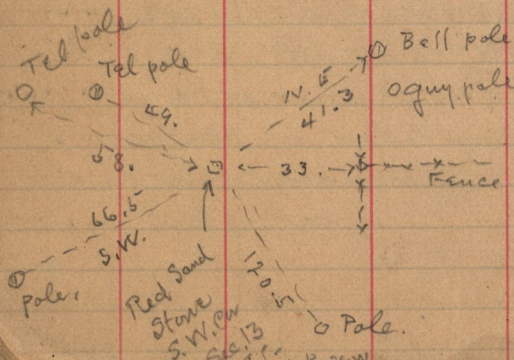 Tel pole
Tel pole
Bell pole
guy pole
N.E
41.3
49.
58.
33.
Fence
66.5
S.W.
pole.
Red Sand
Stone
S.W. Cor
Sec. 13
120.5
Pole.